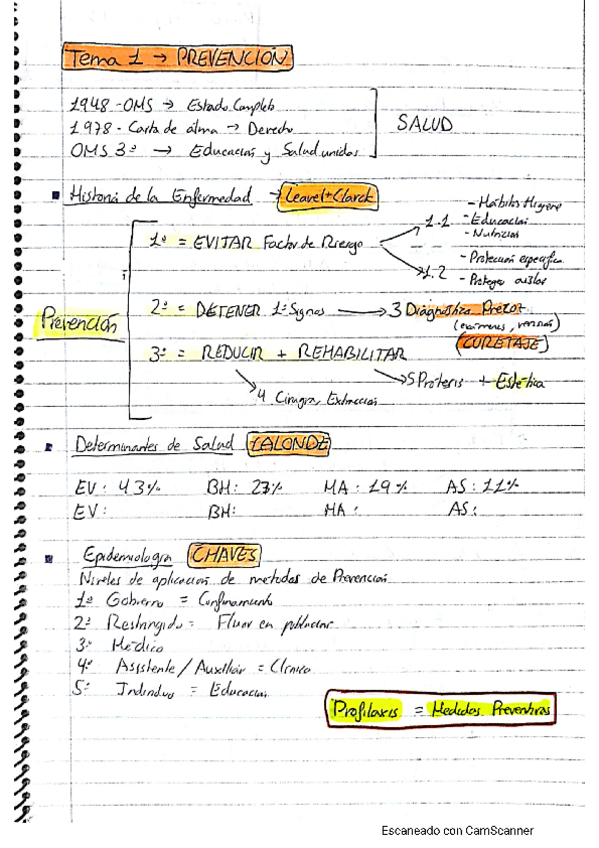 Tema 1 → PREVENCIÓN
1948 - OMS → Estado Completo
1978 - Carta de alma → Derecho
OMS 3ª → Educación y Salud unidos
SALUD
Historia de la Enfermedad → Leavel + Clarck
Prevención
1ª = EVITAR Factor de Riesgo
1.1 - Hábitos Higiene
- Educación
- Nutrición
1.2 - Protección específica
- Proteger
2ª = DETENER 1º Signos → 3 Diagnóstico Precoz
(exámenes, revisión)
(CURETAJE)
3ª = REDUCIR + REHABILITAR
4 Cirugía, Extracción
5 Prótesis + Estética
Determinantes de Salud LALONDE
EV: 43% BH: 27% MA: 19% AS: 11%
EV: BH: MA: AS:
Epidemiología CHAVES
Niveles de aplicación de metodos de Prevención
1º Gobierno = Confinamiento
2º Restringido = Fluor en
3º Médico
4º Asistente / Auxiliar = Clínica
5º Individuo = Educación
Profilaxis = Medidas Preventivas
Escaneado con CamScanner